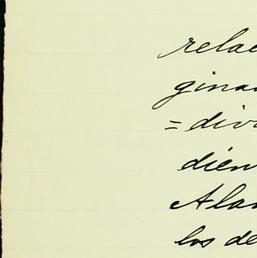 relac
ginar
= div
dién
Alar
los de